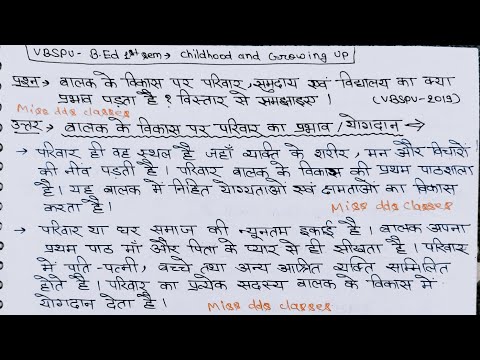 VBSPU - B.Ed 1st sem → childhood and Growing UP
प्रश्न → बालक के विकास पर परिवार, समुदाय एवं विद्यालय का क्या
प्रभाव पड़ता है? विस्तार से समझाइए। (VBSPU-2019)
Miss dds classes
उत्तर → बालक के विकास पर परिवार का प्रभाव/योगदान →
→ परिवार ही वह स्थल है जहाँ व्यक्ति के शरीर, मन और विचारों
की नींव पड़ती है। परिवार बालक के विकास की प्रथम पाठशाला
है। यह बालक में निहित योग्यताओं एवं क्षमताओं का विकास
करता है।
Miss dds classes
→ परिवार या घर समाज की न्यूनतम इकाई है। बालक अपना
प्रथम पाठ माँ और पिता के प्यार से ही सीखता है। परिवार
में पति-पत्नी, बच्चे तथा अन्य आश्रित व्यक्ति सम्मिलित
होते है। परिवार का प्रत्येक सदस्य बालक के विकास में
योगदान देता है।
Miss dds classes